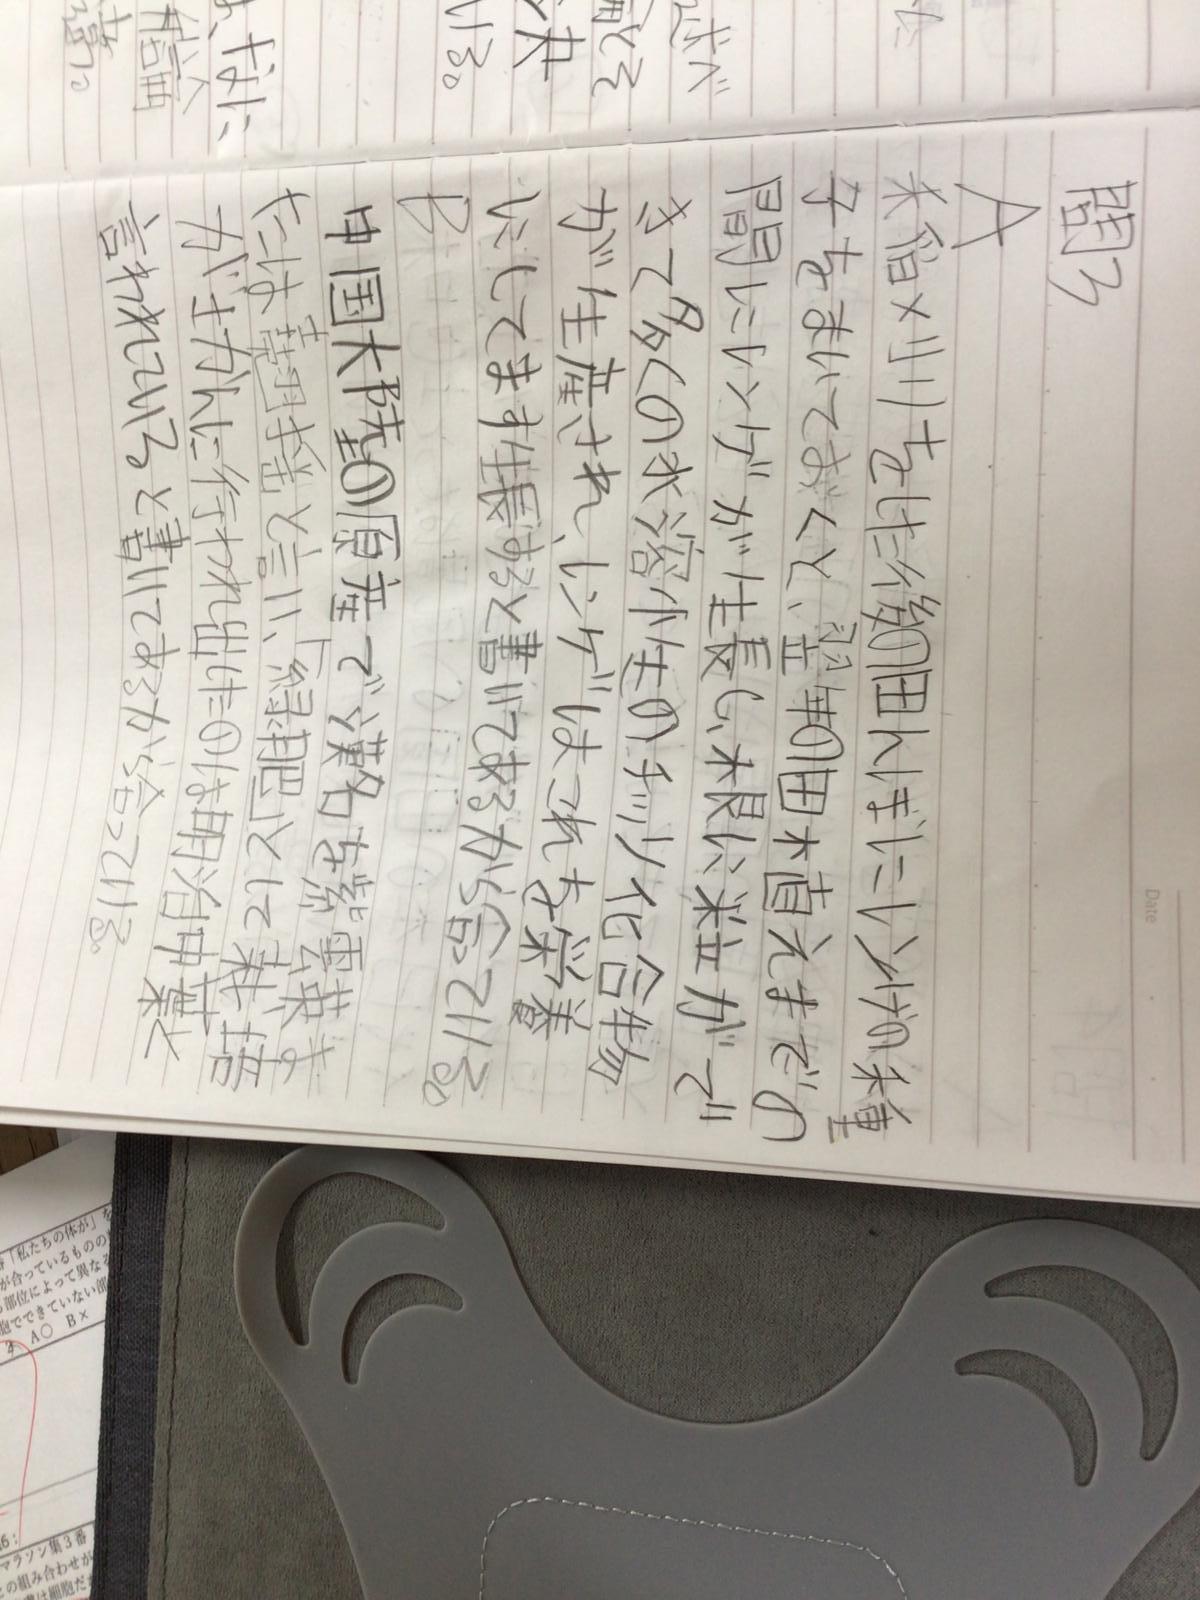 問3
A
米稲メリをした後の田んぼにレンゲの種
子をまいておくと、翌年の田植えまでの
間にレンゲが生長し、根に粒ができ
さて多くの水溶性のチッソ化合物
が生産され、レンゲはこれを栄養
にしてます生長すると書いてあるから合っている。
B
中国大陸の原産で漢名を紫雲英ま
たは翹揺と言い、「緑肥」として栽培
がさかんに行われ出したのは明治中葉と
言われていると書いてあるから合っている。
Date
「私たちの体が」を
が合っているものの
部位によって異なる
胞でできていない部
A○ B×
マラソン集3番
との組み合わせが
は細胞だ